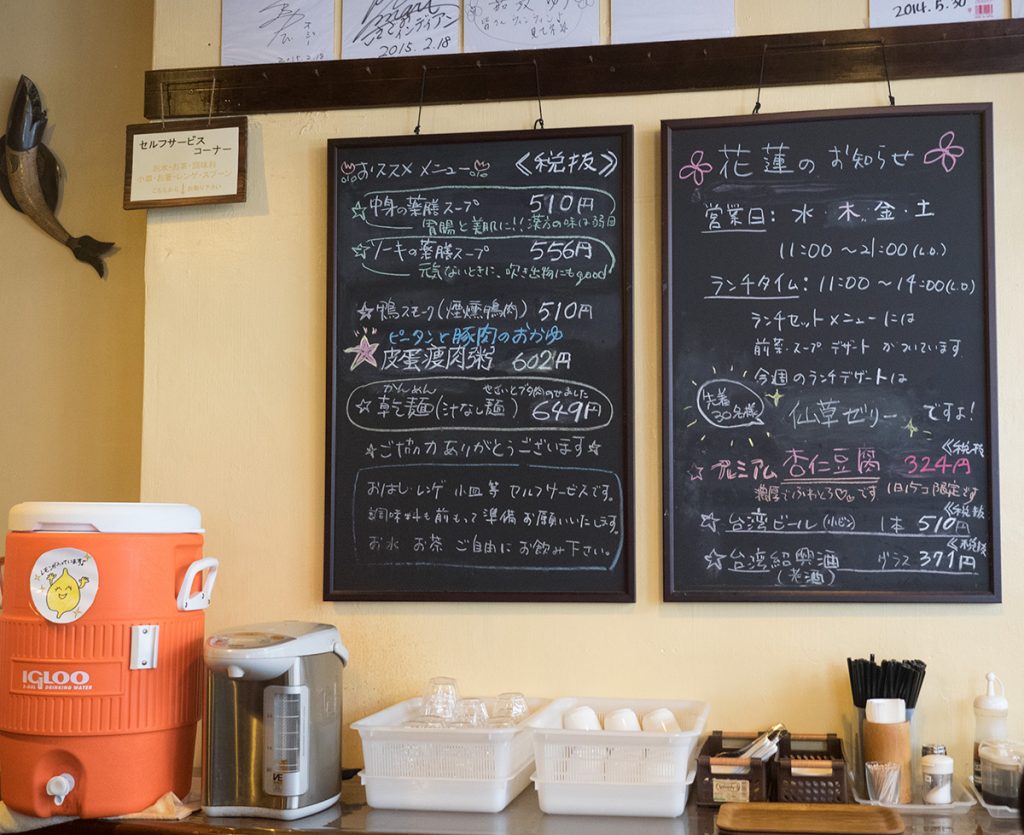 2015.2.18
インディアン
2015.2.18
2014.5.30
セルフサービス
コーナー
お水・お茶・調味料
小皿・お箸・レンゲ・スプーン
こちらから お取り下さい
おススメ メニュー 《税抜》
☆中身の薬膳スープ 510円
胃腸と美肌に!! 漢方の味は弱目
☆ソーキの薬膳スープ 556円
元気ないときに、吹き出物にもgood
☆鴨スモーク(煙燻鴨肉) 510円
ピータンと豚肉のおかゆ
☆皮蛋瘦肉粥 602円
かんめん せぎいとブタ肉のせました
☆乾麺(汁なし麺) 649円
☆ご協力ありがとうございます☆
おはし・レンゲ 小皿 等 セルフサービスです。
調味料も前もって準備お願いいたします。
お水 お茶 ご自由に お飲み下さい。
花蓮のお知らせ
営業日: 水・木・金・土
11:00〜21:00(L.O.)
ランチタイム: 11:00〜14:00(L.O)
ランチセットメニューには
前菜・スープ デザート がついています
今週のランチデザートは
先着
30名様
仙草ゼリー ですよ!
《税抜
☆プレミアム 杏仁豆腐 324円
濃厚でふわとろ です 1日15コ限定です
《税抜
☆台湾ビール(小ビン) 1本 510円
《税抜
☆台湾紹興酒 グラス 371円
(老酒)
レモンが入っています
IGLOO
5-GAL DRINKING WATER
VE